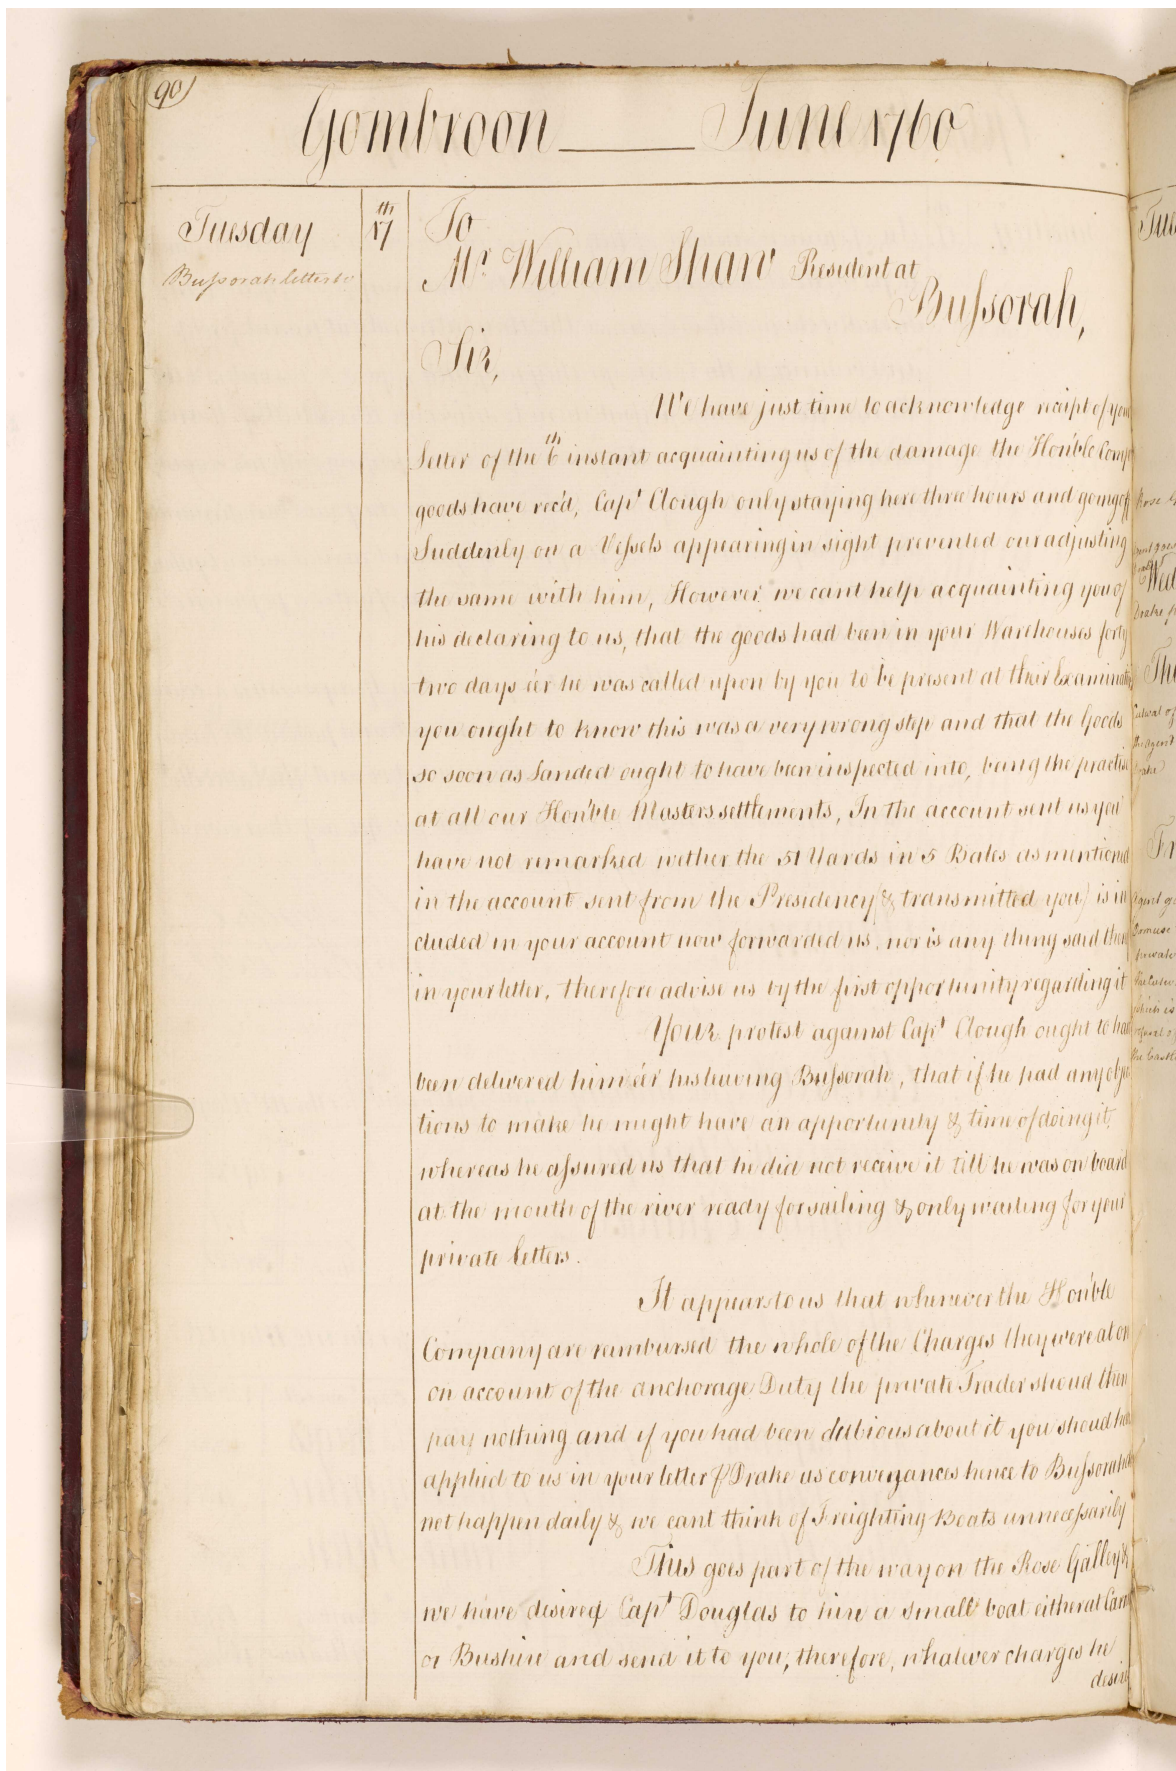 90
Gombroon June 1760
Tuesday
17th
Bussorah letter to
To
Mr. William Shaw President at
Bussorah,
Sir,
We have just time to acknowledge receipt of your
Letter of the 6th instant acquainting us of the damage the Hon'ble Comp
goods have rec'd, Capt Clough only staying here three hours and going off
Suddenly on a Vessels appearing in sight prevented our adjusting
the same with him, However we cant help acquainting you of
his declaring to us, that the goods had been in your Warehouses forty
two days e'er he was called upon by you to be present at their Examinatio
you ought to know this was a very wrong step and that the Goods
so soon as Landed ought to have been inspected into, being the practise
at all our Hon'ble Masters settlements, In the account sent us you
have not remarked wether the 51 Yards in 5 Bales as mentioned
in the account sent from the Presidency (& transmitted you) is in
cluded in your account now forwarded us, nor is any thing said there
in your letter, therefore advise us by the first opportunity regarding it
Your protest against Capt Clough ought to hav
been delivered him e'er his leaving Bussorah, that if he had any obje
tions to make he might have an opportunity & time of doing it,
whereas he assured us that he did not receive it till he was on board
at the mouth of the river ready for sailing & only waiting for your
private letters.
It appears to us that whenever the Hon'ble
Company are reimbursed the whole of the Charges they were at on
on account of the anchorage Duty the private Trader shoud then
pay nothing and if you had been dubious about it you shoud ha
applied to us in your letter P Drake as conveyances hence to Bussorah
not happen daily & we cant think of Freighting Boats unnecessarily
This goes part of the way on the Rose Galley &
we have desired Capt Douglas to hire a small boat either at Carr
or Bushire and send it to you, therefore, whatever charges he
desir
Tue
Rose G
Wed
Drake
Thu
the agent
Drake
Fr
Agent
private
which is
the Castle